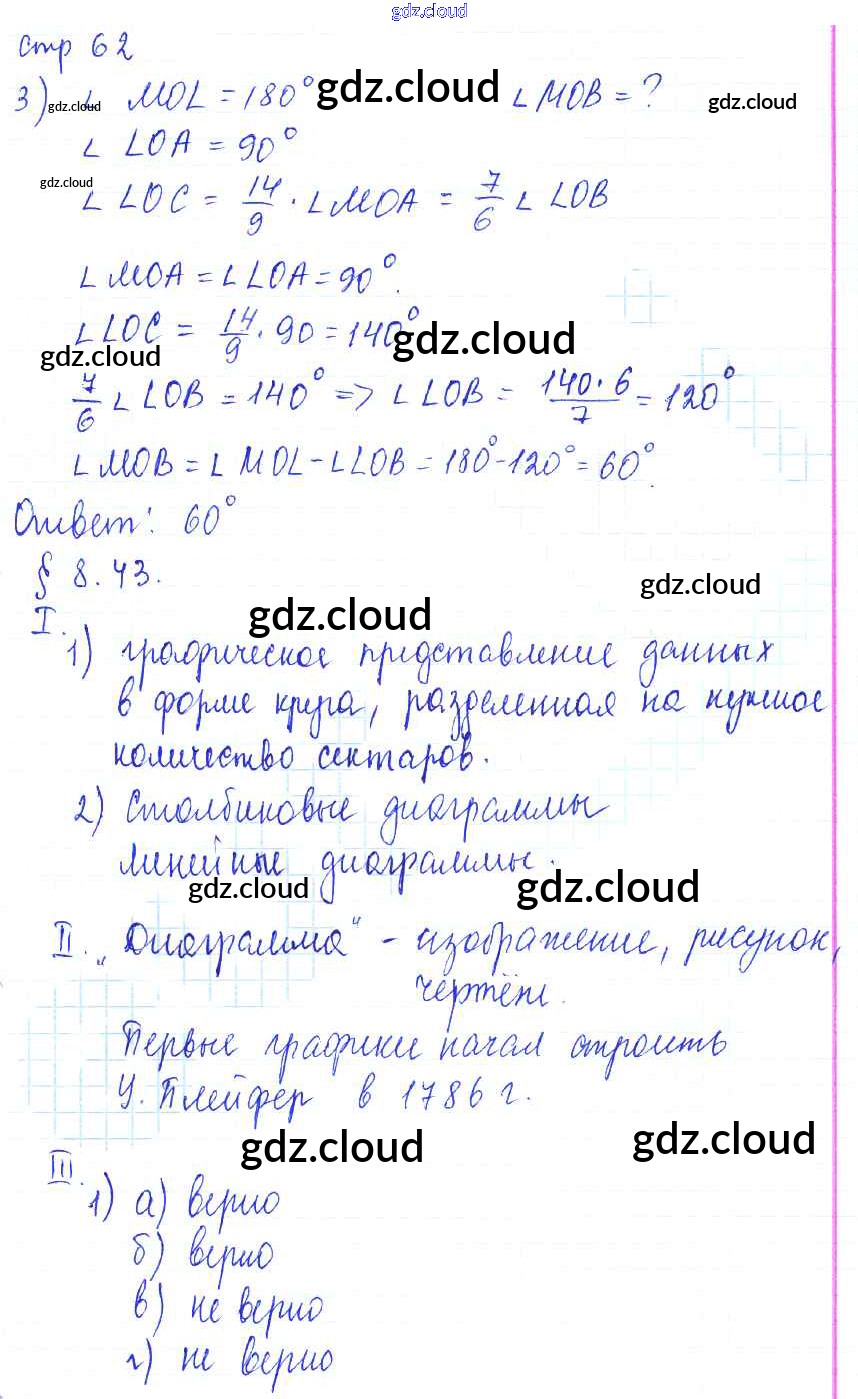 gdz.cloud
стр 62
3) gdz.cloud ∠ MOL = 180° gdz.cloud ∠ MOB = ? gdz.cloud
∠ LOA = 90°
gdz.cloud
∠ LOC = 14/9 · ∠ MOA = 7/6 ∠ LOB
∠ MOA = ∠ LOA = 90°.
∠ LOC = 14/9 · 90 = 140°
gdz.cloud gdz.cloud
7/6 ∠ LOB = 140° => ∠ LOB = 140·6/7 = 120°
∠ MOB = ∠ MOL - ∠ LOB = 180° - 120° = 60°.
Ответ: 60°
§ 8.43.
gdz.cloud
gdz.cloud
I. 1) графическое представление данных
в форме круга, разделенная на нужное
количество сектаров.
2) Столбиковые диаграммы
линейные диаграммы.
gdz.cloud gdz.cloud
II. „Диаграмма“ - изображение, рисунок,
чертёж.
Первые графики начал строить
У. Плейфер в 1786 г.
gdz.cloud gdz.cloud
III. 1) а) верно
б) верно
в) не верно
г) не верно